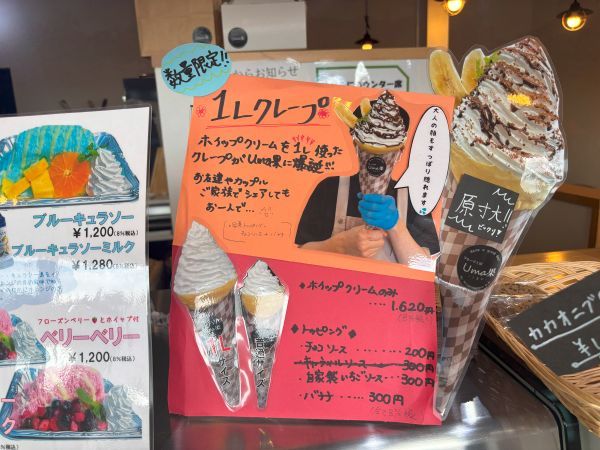 数量限定!!
からお知らせ
1Lクレープ
ホイップクリームを1L使った
クレープがUma果に爆誕!!!
お友達やカップル
ご家族でシェアしても
お一人で…
大人の顔もすっぽり隠れます
原寸大!!
ビックリ
Uma果
1Lサイズ
普通サイズ
◆ホイップクリームのみ
1,620円
◆トッピング◆
・チョコソース 200円
・キャラメルソース 300円
・自家製いちごソース 300円
・バナナ 300円
ブルーキュラソー
¥1,200(8%税込)
ブルーキュラソーミルク
¥1,280(8%税込)
フローズンベリーとホイップ付
ベリーベリー
¥1,200(8%税込)
カカオニブ